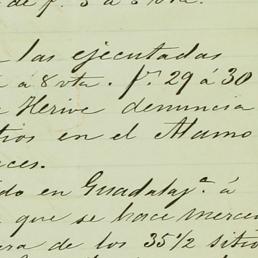 de f. 3 a 8 vta.
las ejecutadas
a 8 vta. f.ˢ 29 á 30
Herive denuncia
tios en el Alamo
ces.
do en Guadalaj.ª á
que se hace merced
era de los 35 1/2 sitio